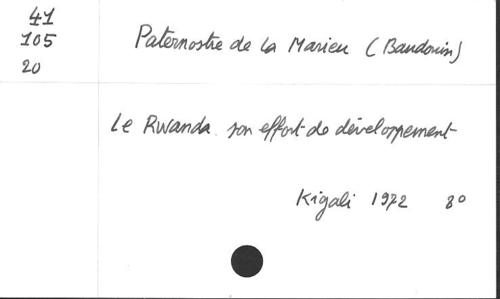 41
105
20
Paternostre de La Marieu (Baudouin)
Le Rwanda son effort de développement
Kigali 1972 8°